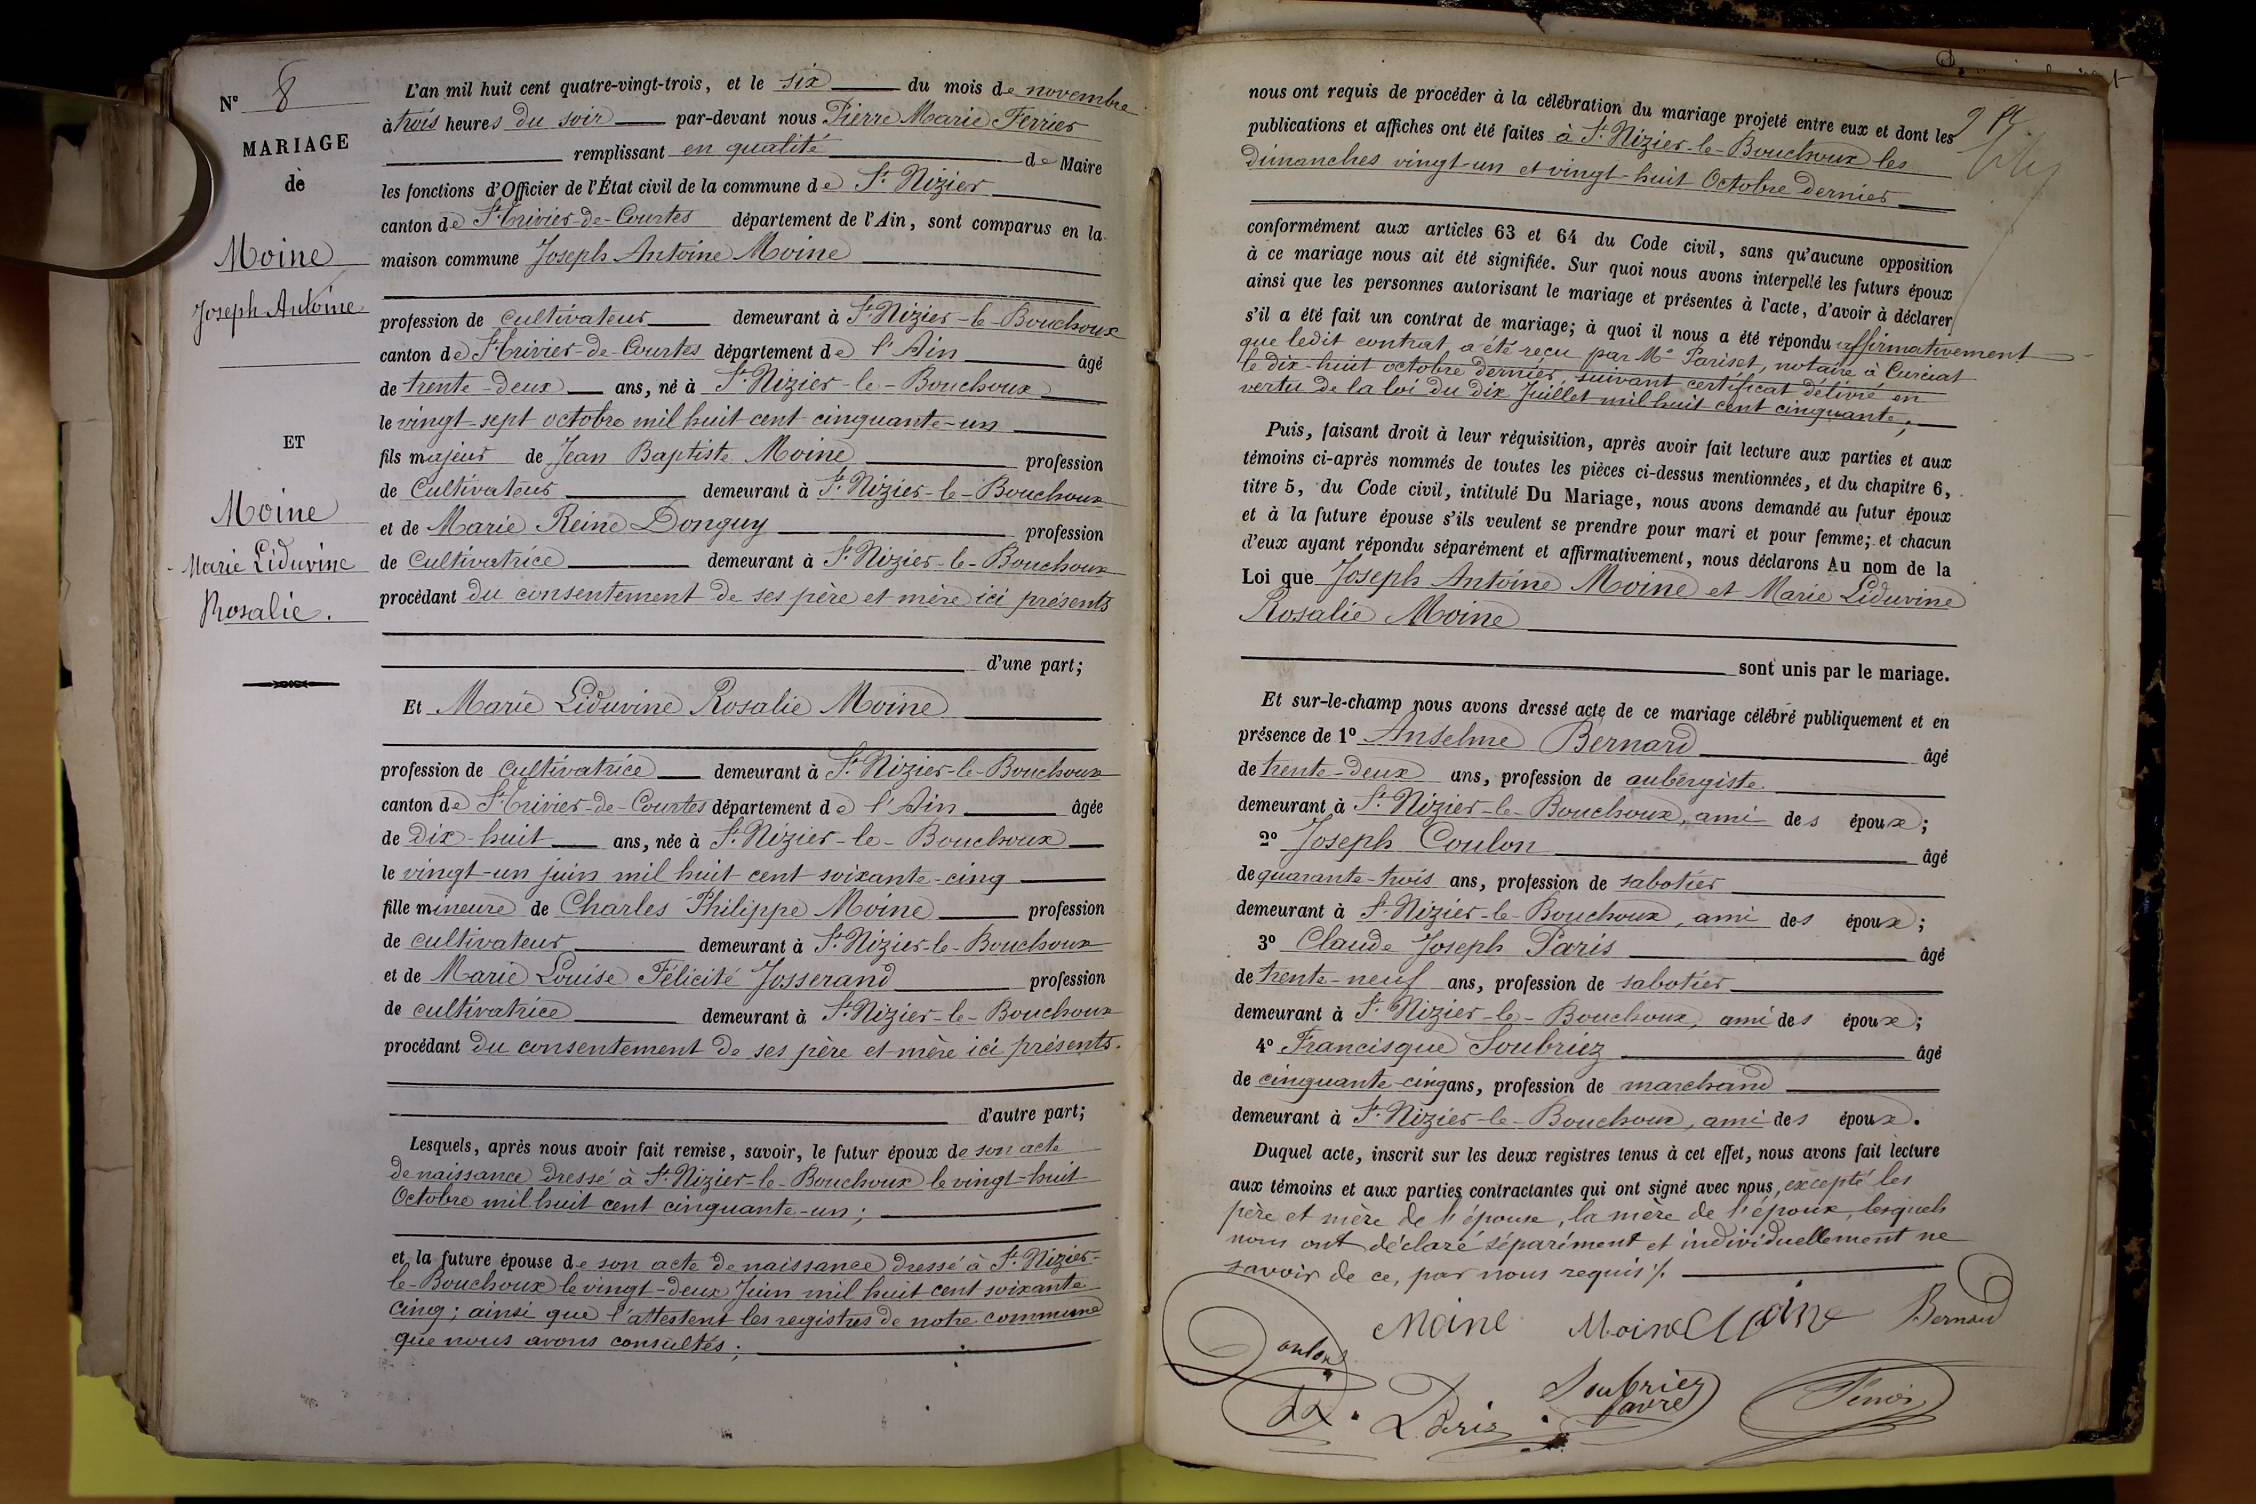 N° 8
MARIAGE
de
Moine
Joseph Antoine
ET
Moine
Marie Liduvine
Rosalie.
L'an mil huit cent quatre-vingt-trois, et le six du mois de novembre
à trois heures du soir par-devant nous Pierre Marie Ferrier
remplissant en qualité de Maire
les fonctions d'Officier de l'État civil de la commune de St. Nizier
canton de St. Trivier-de-Courtes département de l'Ain, sont comparus en la
maison commune Joseph Antoine Moine
profession de cultivateur demeurant à St. Nizier-le-Bouchoux
canton de St. Trivier-de-Courtes département de l'Ain âgé
de trente-deux ans, né à St. Nizier-le-Bouchoux
le vingt-sept octobre mil huit cent cinquante-un
fils majeur de Jean Baptiste Moine profession
de Cultivateur demeurant à St. Nizier-le-Bouchoux
et de Marie Reine Donguy profession
de Cultivatrice demeurant à St. Nizier-le-Bouchoux
procédant du consentement de ses père et mère ici présents
d'une part;
Et Marie Liduvine Rosalie Moine
profession de cultivatrice demeurant à St. Nizier-le-Bouchoux
canton de St. Trivier-de-Courtes département de l'Ain âgée
de dix-huit ans, née à St. Nizier-le-Bouchoux
le vingt-un juin mil huit cent soixante-cinq
fille mineure de Charles Philippe Moine profession
de cultivateur demeurant à St. Nizier-le-Bouchoux
et de Marie Louise Félicité Josserand profession
de cultivatrice demeurant à St. Nizier-le-Bouchoux
procédant du consentement de ses père et mère ici présents.
d'autre part;
Lesquels, après nous avoir fait remise, savoir, le futur époux de son acte
de naissance dressé à St. Nizier-le-Bouchoux le vingt-huit
Octobre mil huit cent cinquante-un;
et la future épouse de son acte de naissance dressé à St. Nizier-
le-Bouchoux le vingt-deux Juin mil huit cent soixante
cinq; ainsi que l'attestent les registres de notre commune
que nous avons consultés;
nous ont requis de procéder à la célébration du mariage projeté entre eux et dont les
publications et affiches ont été faites à St. Nizier-le-Bouchoux les
dimanches vingt-un et vingt-huit Octobre dernier
conformément aux articles 63 et 64 du Code civil, sans qu'aucune opposition
à ce mariage nous ait été signifiée. Sur quoi nous avons interpellé les futurs époux
ainsi que les personnes autorisant le mariage et présentes à l'acte, d'avoir à déclarer
s'il a été fait un contrat de mariage; à quoi il nous a été répondu affirmativement
que ledit contrat a été reçu par Me Pariset, notaire à Curciat
le dix-huit octobre dernier, suivant certificat délivré en
vertu de la loi du dix Juillet mil huit cent cinquante;
Puis, faisant droit à leur réquisition, après avoir fait lecture aux parties et aux
témoins ci-après nommés de toutes les pièces ci-dessus mentionnées, et du chapitre 6,
titre 5, du Code civil, intitulé Du Mariage, nous avons demandé au futur époux
et à la future épouse s'ils veulent se prendre pour mari et pour femme; et chacun
d'eux ayant répondu séparément et affirmativement, nous déclarons Au nom de la
Loi que Joseph Antoine Moine et Marie Liduvine
Rosalie Moine
sont unis par le mariage.
Et sur-le-champ nous avons dressé acte de ce mariage célébré publiquement et en
présence de 1° Anselme Bernard âgé
de trente-deux ans, profession de aubergiste
demeurant à St. Nizier-le-Bouchoux, ami des époux;
2° Joseph Coulon âgé
de quarante-trois ans, profession de sabotier
demeurant à St. Nizier-le-Bouchoux, ami des époux;
3° Claude Joseph Paris âgé
de trente-neuf ans, profession de sabotier
demeurant à St. Nizier-le-Bouchoux, ami des époux;
4° Francisque Soubriez âgé
de cinquante-cinq ans, profession de marchand
demeurant à St. Nizier-le-Bouchoux, ami des époux.
Duquel acte, inscrit sur les deux registres tenus à cet effet, nous avons fait lecture
aux témoins et aux parties contractantes qui ont signé avec nous, excepté les
père et mère de l'épouse, la mère de l'époux, lesquels
nous ont déclaré séparément et individuellement ne
savoir de ce, par nous requis ./.
Moine Moine Moine Bernard
Coulon
Paris Soubriez
favre